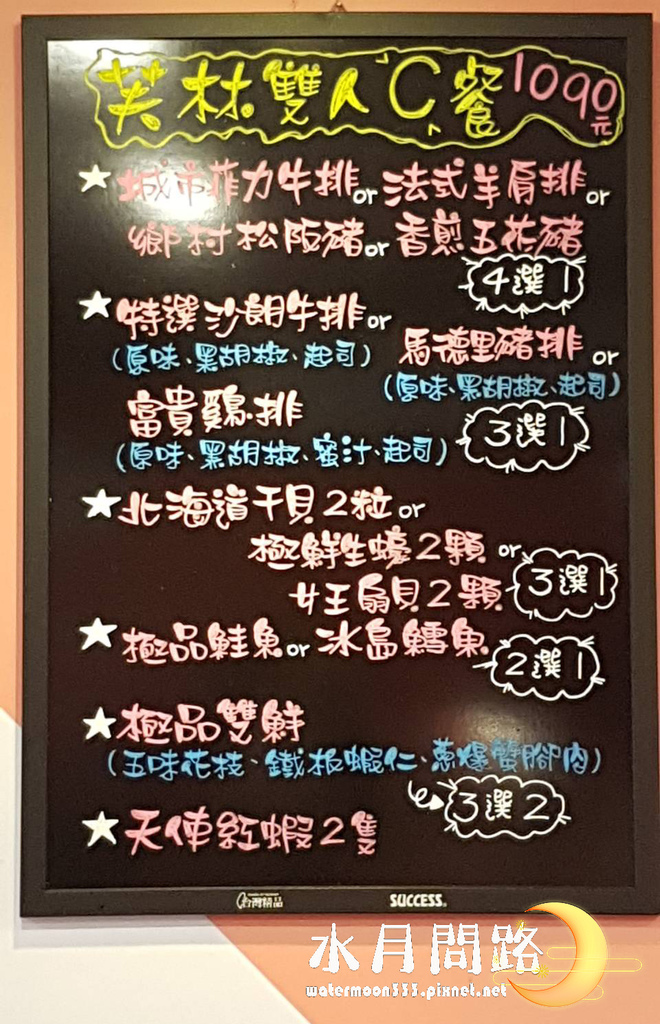 芙林雙人C餐 1090元
★城市菲力牛排or法式羊肩排or
鄉村松阪豬or香煎五花豬
4選1
★特選沙朗牛排or
(原味、黑胡椒、起司)
馬德里豬排 or
(原味、黑胡椒、起司)
富貴雞排
(原味、黑胡椒、蜜汁、起司)
3選1
★北海道干貝2粒or
極鮮生蠔2顆 or
女王扇貝2顆
3選1
★極品鮭魚or冰島鱈魚
2選1
★極品雙鮮
(五味花枝、鐵板蝦仁、蔥爆蟹腳肉)
3選2
★天使紅蝦2隻
台灣精品 SUCCESS
水月問路
watermoon333.pixnet.net